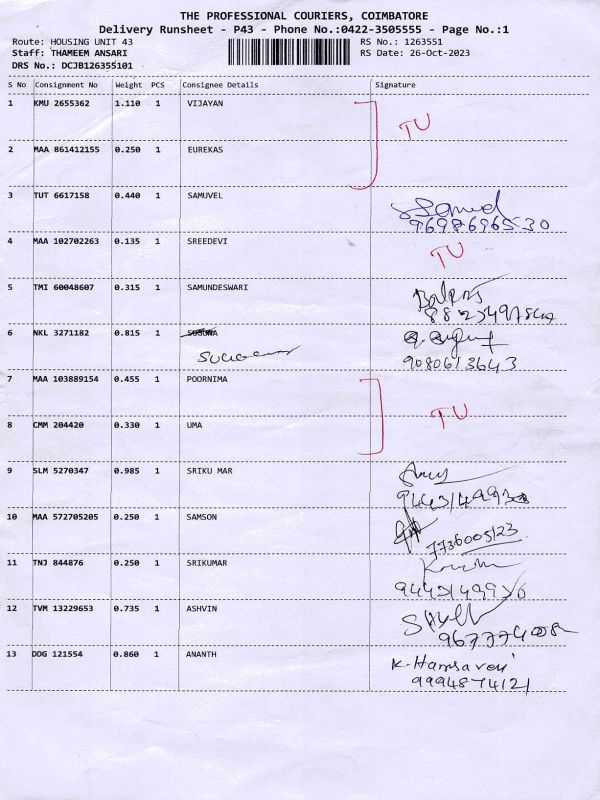 THE PROFESSIONAL COURIERS, COIMBATORE
Delivery Runsheet - P43 - Phone No.:0422-3505555 - Page No.:1
Route: HOUSING UNIT 43 RS No.: 1263551
Staff: THAMEEM ANSARI RS Date: 26-Oct-2023
DRS No.: DCJB126355101
S No Consignment No Weight PCS Consignee Details Signature
1 KMU 2655362 1.110 1 VIJAYAN
TU
2 MAA 861412155 0.250 1 EUREKAS
3 TUT 6617158 0.440 1 SAMUVEL
9698696530
4 MAA 102702263 0.135 1 SREEDEVI TU
5 TMI 60048607 0.315 1 SAMUNDESWARI
6 NKL 3271182 0.815 1
9080613643
7 MAA 103889154 0.455 1 POORNIMA
TU
8 CMM 204420 0.330 1 UMA
9 SLM 5270347 0.985 1 SRIKU MAR
10 MAA 572705205 0.250 1 SAMSON
7736005123
11 TNJ 844876 0.250 1 SRIKUMAR
12 TVM 13229653 0.735 1 ASHVIN
13 DDG 121554 0.860 1 ANANTH K. Hamsaveni
9994874121